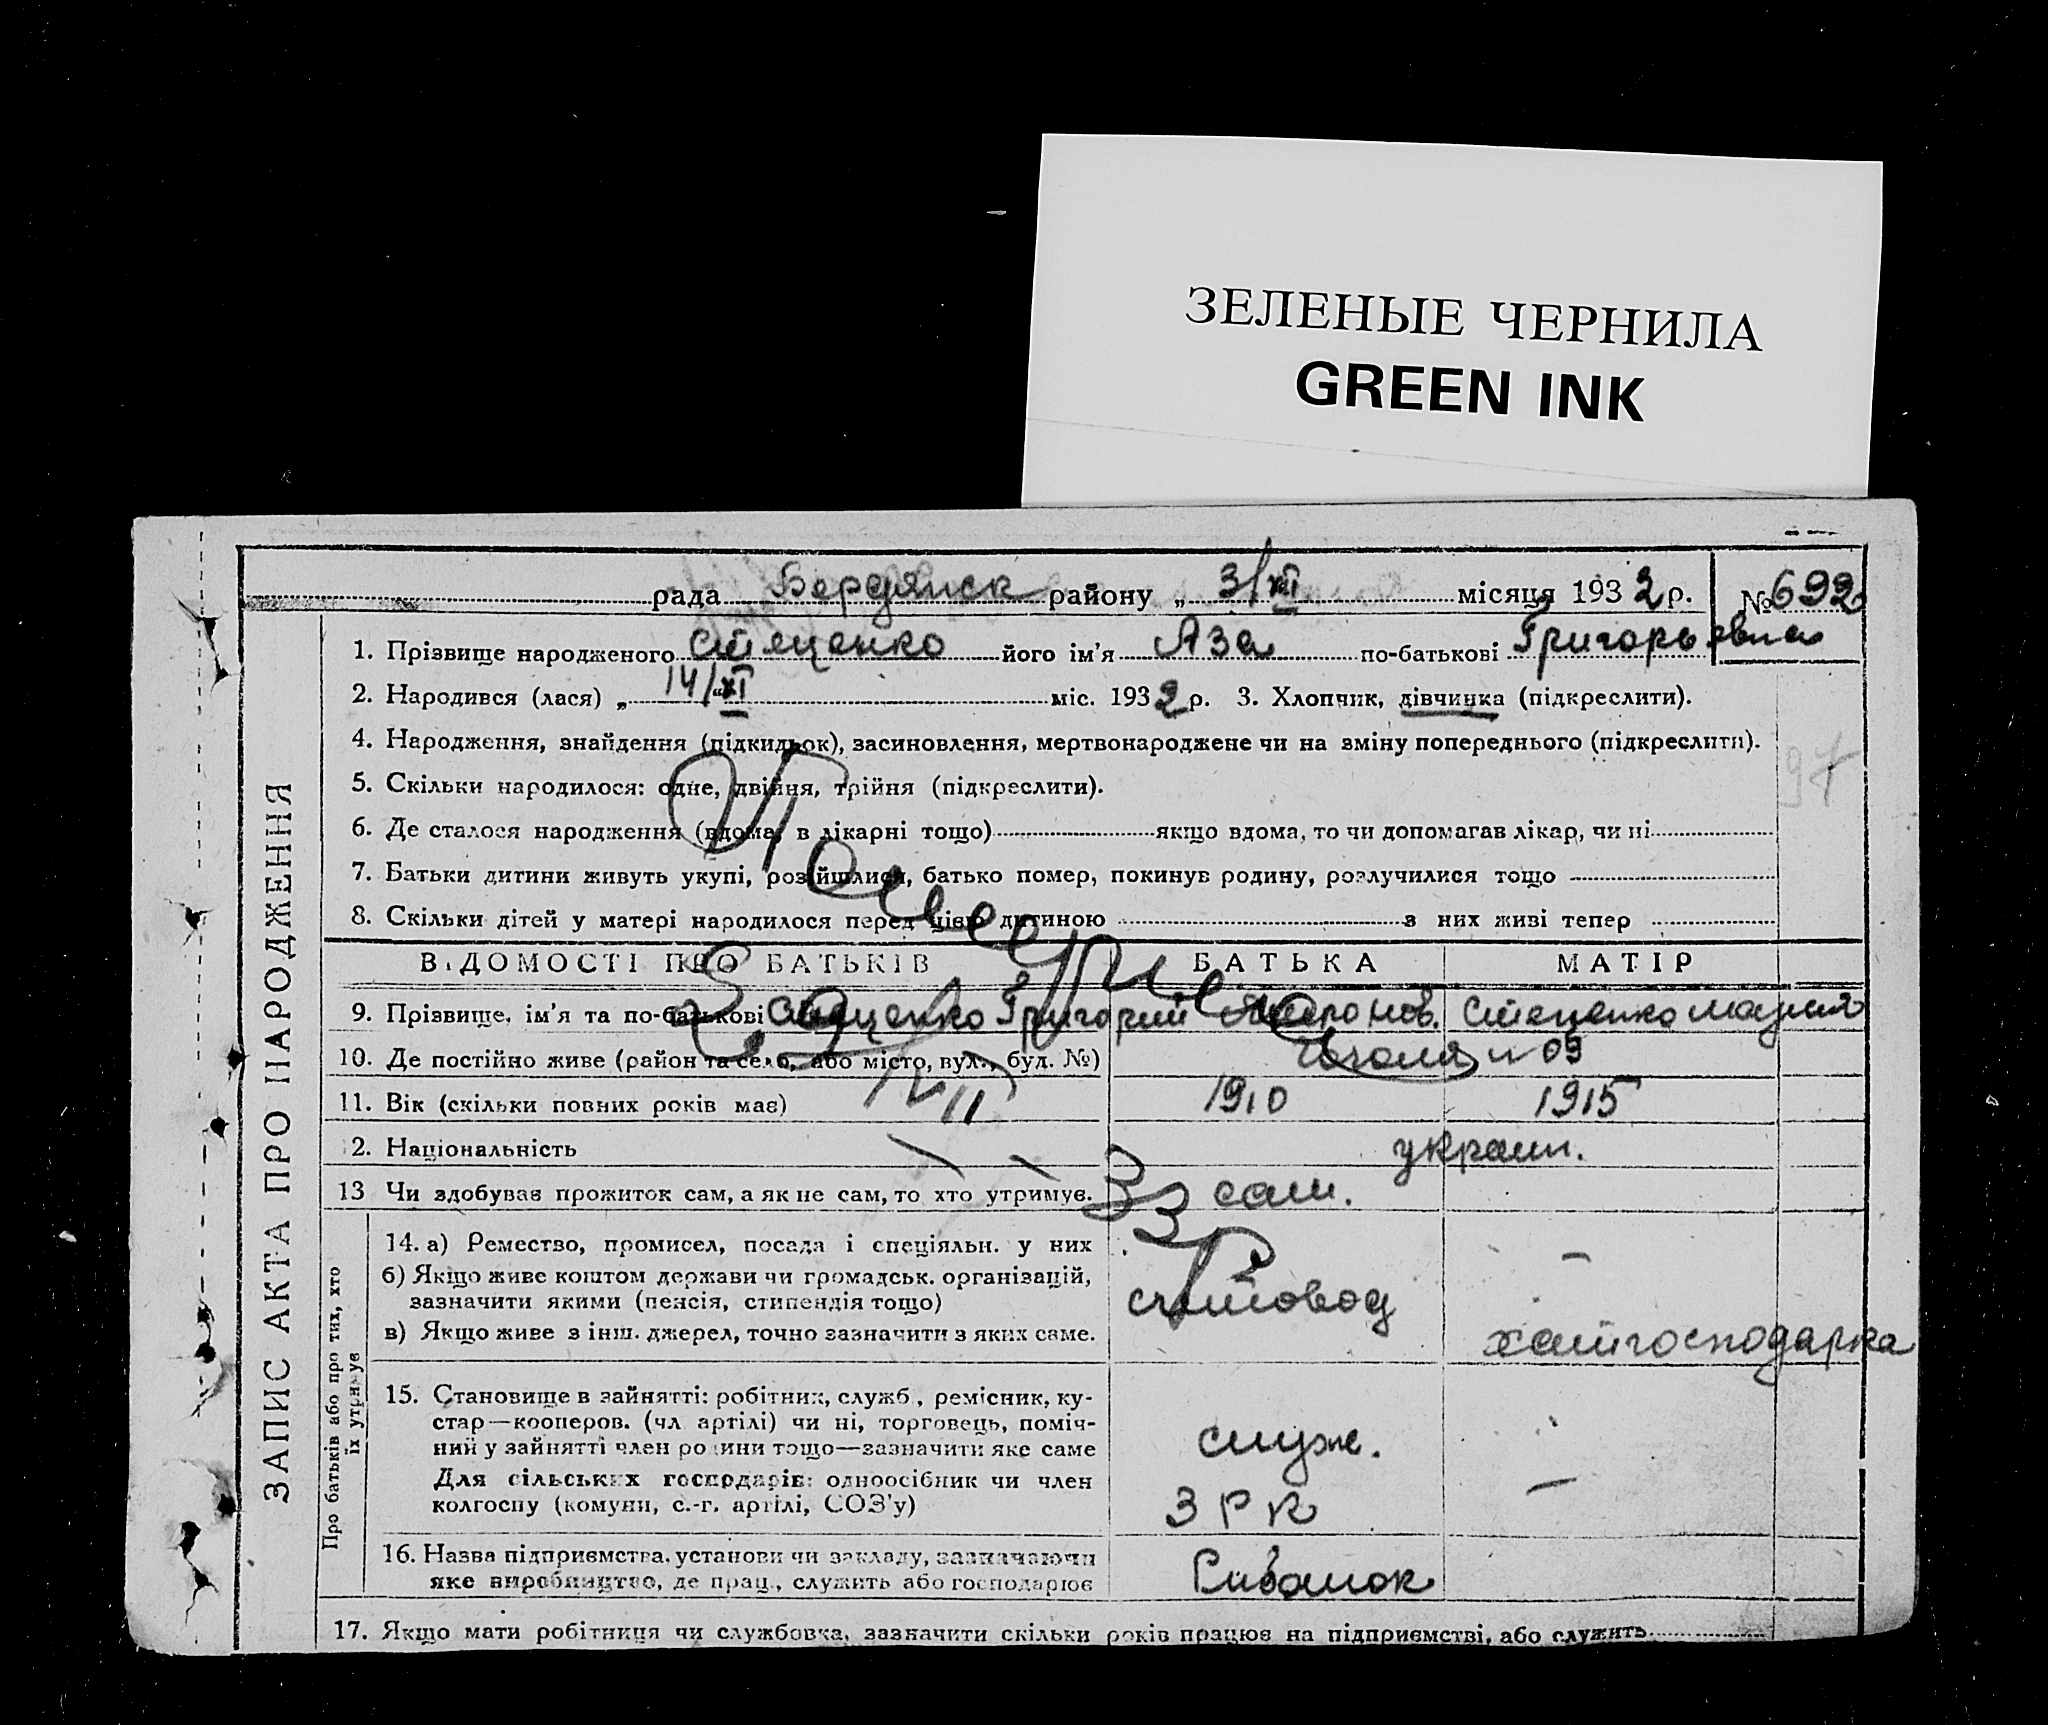 ЗЕЛЕНЫЕ ЧЕРНИЛА
GREEN INK
рада Бердянск району „ 3/XII місяця 1932 р. № 692
1. Прізвище народженого Стеценко його ім’я Аза по-батькові Григорьевна
2. Народився (лася) „ 14/XI міс. 1932 р. 3. Хлопчик, дівчинка (підкреслити).
4. Народження, знайдення (підкидьок), засиновлення, мертвонароджене чи на зміну попереднього (підкреслити).
97
5. Скільки народилося: одне, двійня, трійня (підкреслити).
6. Де сталося народження (вдома, в лікарні тощо) якщо вдома, то чи допомагав лікар, чи ні
7. Батьки дитини живуть укупі, розійшлися, батько помер, покинув родину, розлучилися тощо
8. Скільки дітей у матері народилося перед цією дитиною з них живі тепер
ВІДОМОСТІ ПРО БАТЬКІВ БАТЬКА МАТІР
9. Прізвище, ім’я та по-батькові Стеценко Григорий Стеценко Мария
10. Де постійно живе (район та село, або місто, вул., буд. №) Гоголя
11. Вік (скільки повних років має) 1910 1915
12. Національність украин.
13 Чи здобував прожиток сам, а як не сам, то хто утримує. сам.
14. а) Ремество, промисел, посада і спеціяльн. у них –
б) Якщо живе коштом держави чи громадськ. організацій,
зазначити якими (пенсія, стипендія тощо) счетовод
в) Якщо живе з інш. джерел, точно зазначити з яких саме. хатгосподарка
15. Становище в зайнятті: робітник, служб., ремісник, ку-
стар—кооперов. (чл артілі) чи ні, торговець, поміч-
ний у зайнятті член родини тощо—зазначити яке саме служ.
Для сільських господарів: одноосібник чи член –
колгоспу (комуни, с.-г. артілі, СОЗ’у) ЗРК
16. Назва підприємства, установи чи закладу, зазначаючи
яке виробництво, де прац., служить або господарює
17. Якщо мати робітниця чи службовка, зазначити скільки років працює на підприємстві, або служить
ЗАПИС АКТА ПРО НАРОДЖЕННЯ
Про батьків або про тих, хто
їх утримує